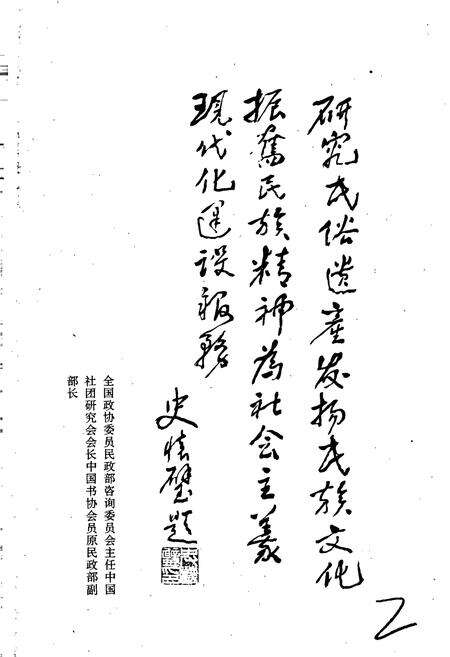 研究民俗遗产发扬民族文化
振奋民族精神为社会主义
现代化建设服务
史怀璧题
全国政协委员民政部咨询委员会主任中国
社团研究会会长中国书协会员原民政部副
部长